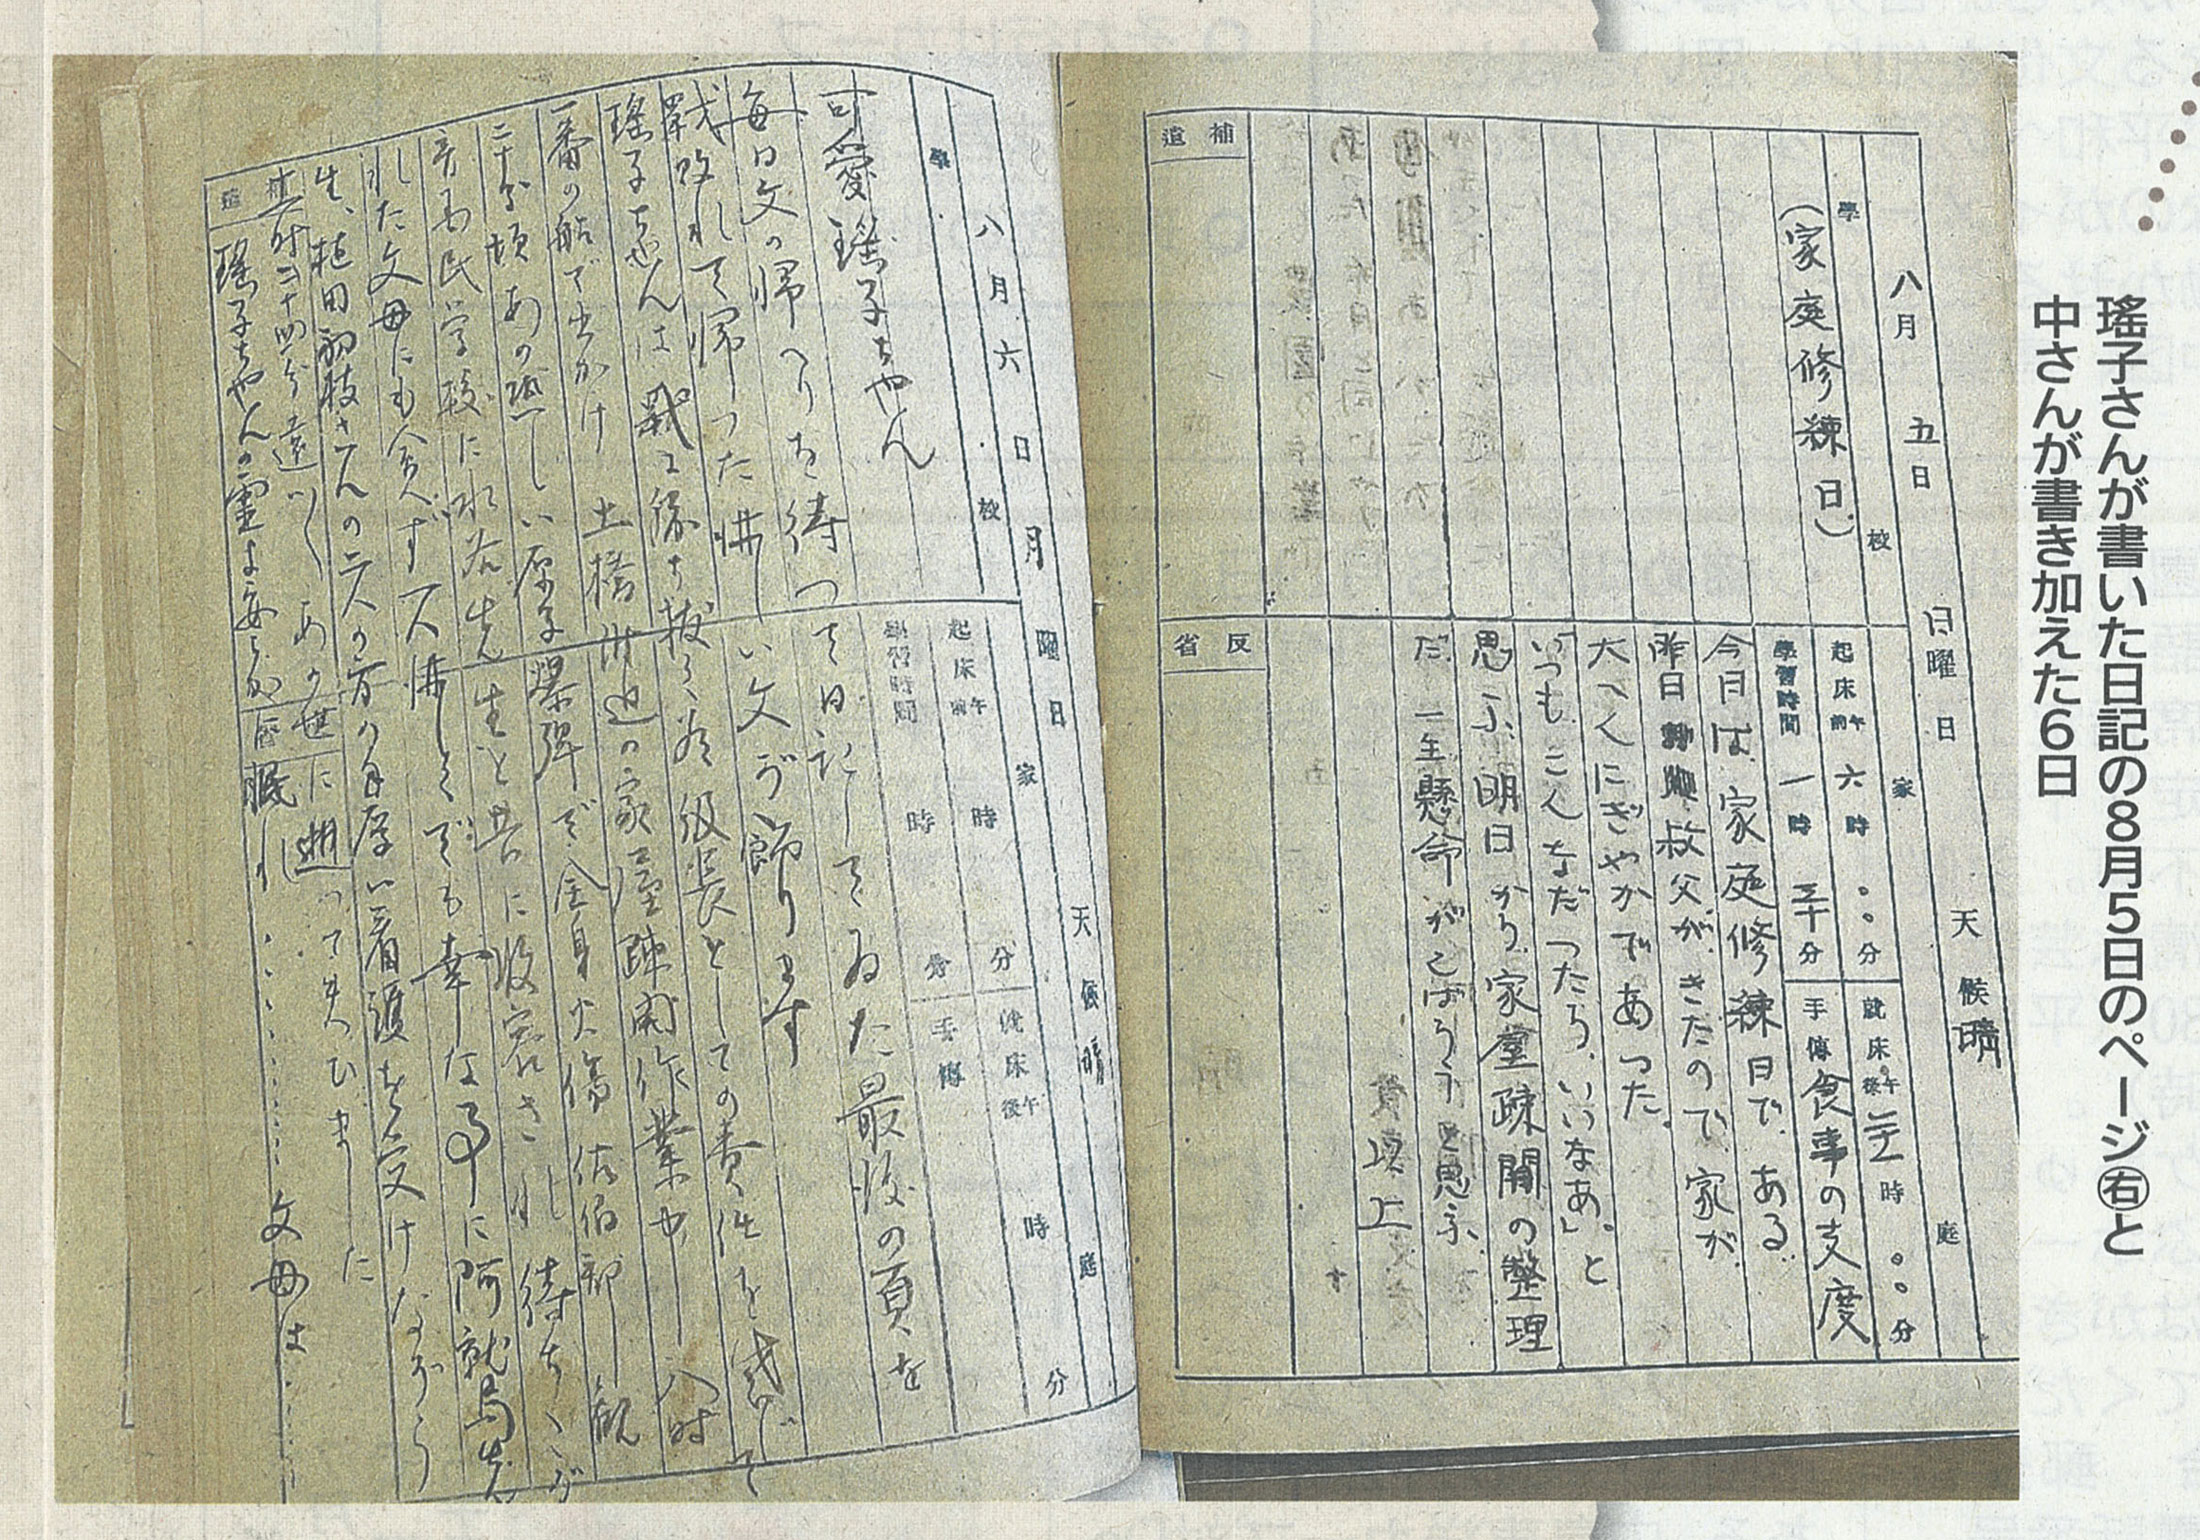 瑤子さんが書いた日記の8月5日のページ㊨と
中さんが書き加えた6日
八月五日 日曜日 天候 晴
學校
家庭
(家庭修練日)
起床 午前 六時〇〇分
就床 午後 時〇〇分
學習時間 一時三十分
手傳 食事の支度
今日は、家庭修練日である。
昨日 叔父が、きたので、家が
大へんにぎやかであった。
「いつも、こんなだつたら、いいなあ。」と
思ふ。明日から、家屋疎開の整理
だ。一生懸命がんばらうと思ふ。
以上
補遺
反省
八月六日 月曜日 天候 晴
學校
家庭
起床 午前 時 分
就床 午後 時 分
學習時間 時 分
手傳
可愛瑤子ちやん
毎日文の帰へりを待つて日記してゐた最後の頁を
戦敗れて帰つた悲しい父が飾ります
瑤子ちやんは戦に勝ち抜く為級長としての責任を感じて
一番の船で出かけ 土橋附近の家屋疎開作業中 八時
二十分頃あの恐しい原子爆弾で全身火傷 佐伯郡観
音国民学校に水谷先生と共に収容され 待ちこが
れた父母にも会へず 悲しくでも幸な事に阿就島先
生、植田初枝さんの二人の方の手厚い看護を受けながら
其時二十四分 遠いあの世に逝つて失ひました
瑤子ちやんの霊よ安らかに眠れ‥‥‥‥‥父母は‥‥